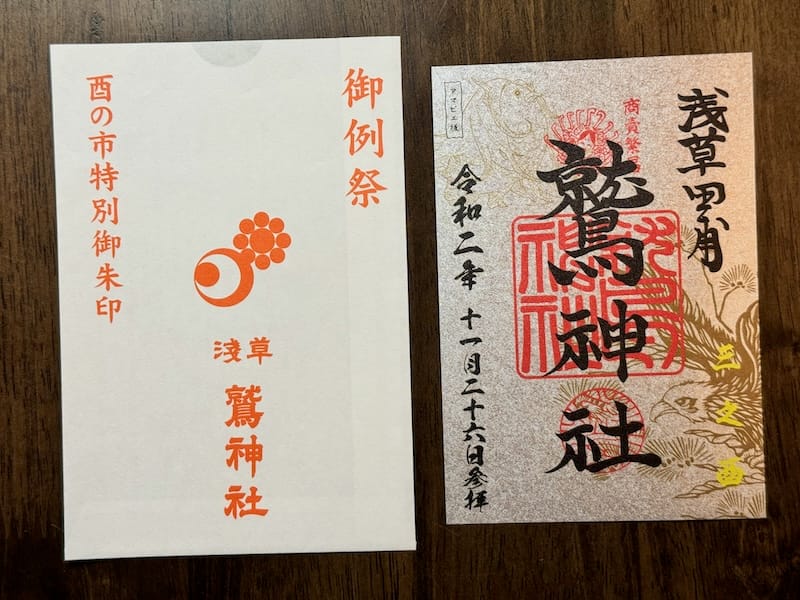 御例祭
酉の市特別御朱印
淺草
鷲神社
浅草田甫
商売繁昌
鷲神社
三之酉
令和二年 十一月二十六日参拝
アマビエ様